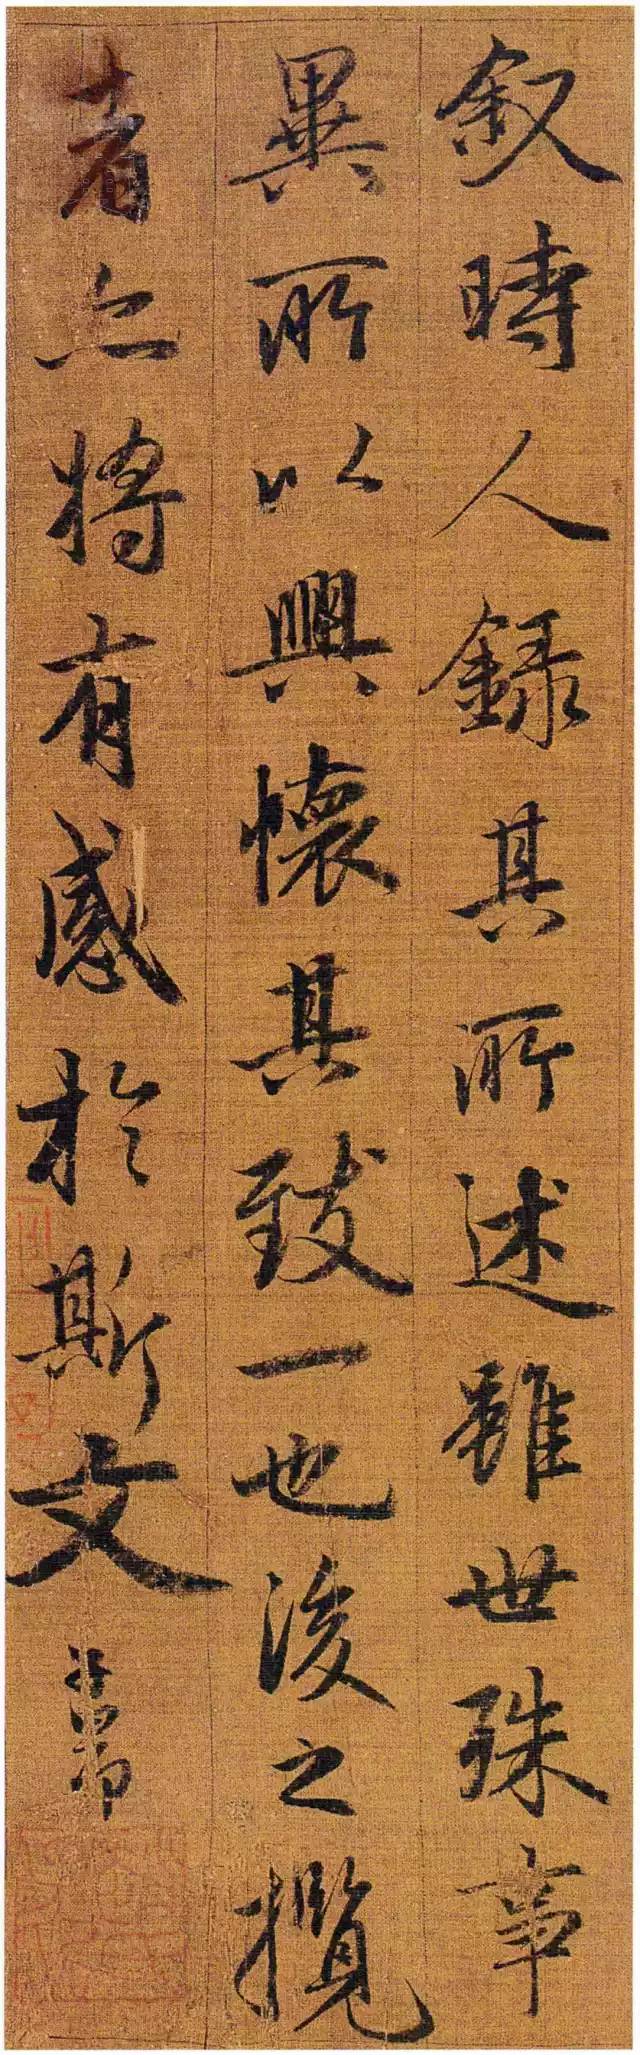 叙時人錄其所述雖世殊事
異所以興懷其致一也後之攬
者亦將有感於斯文 芾